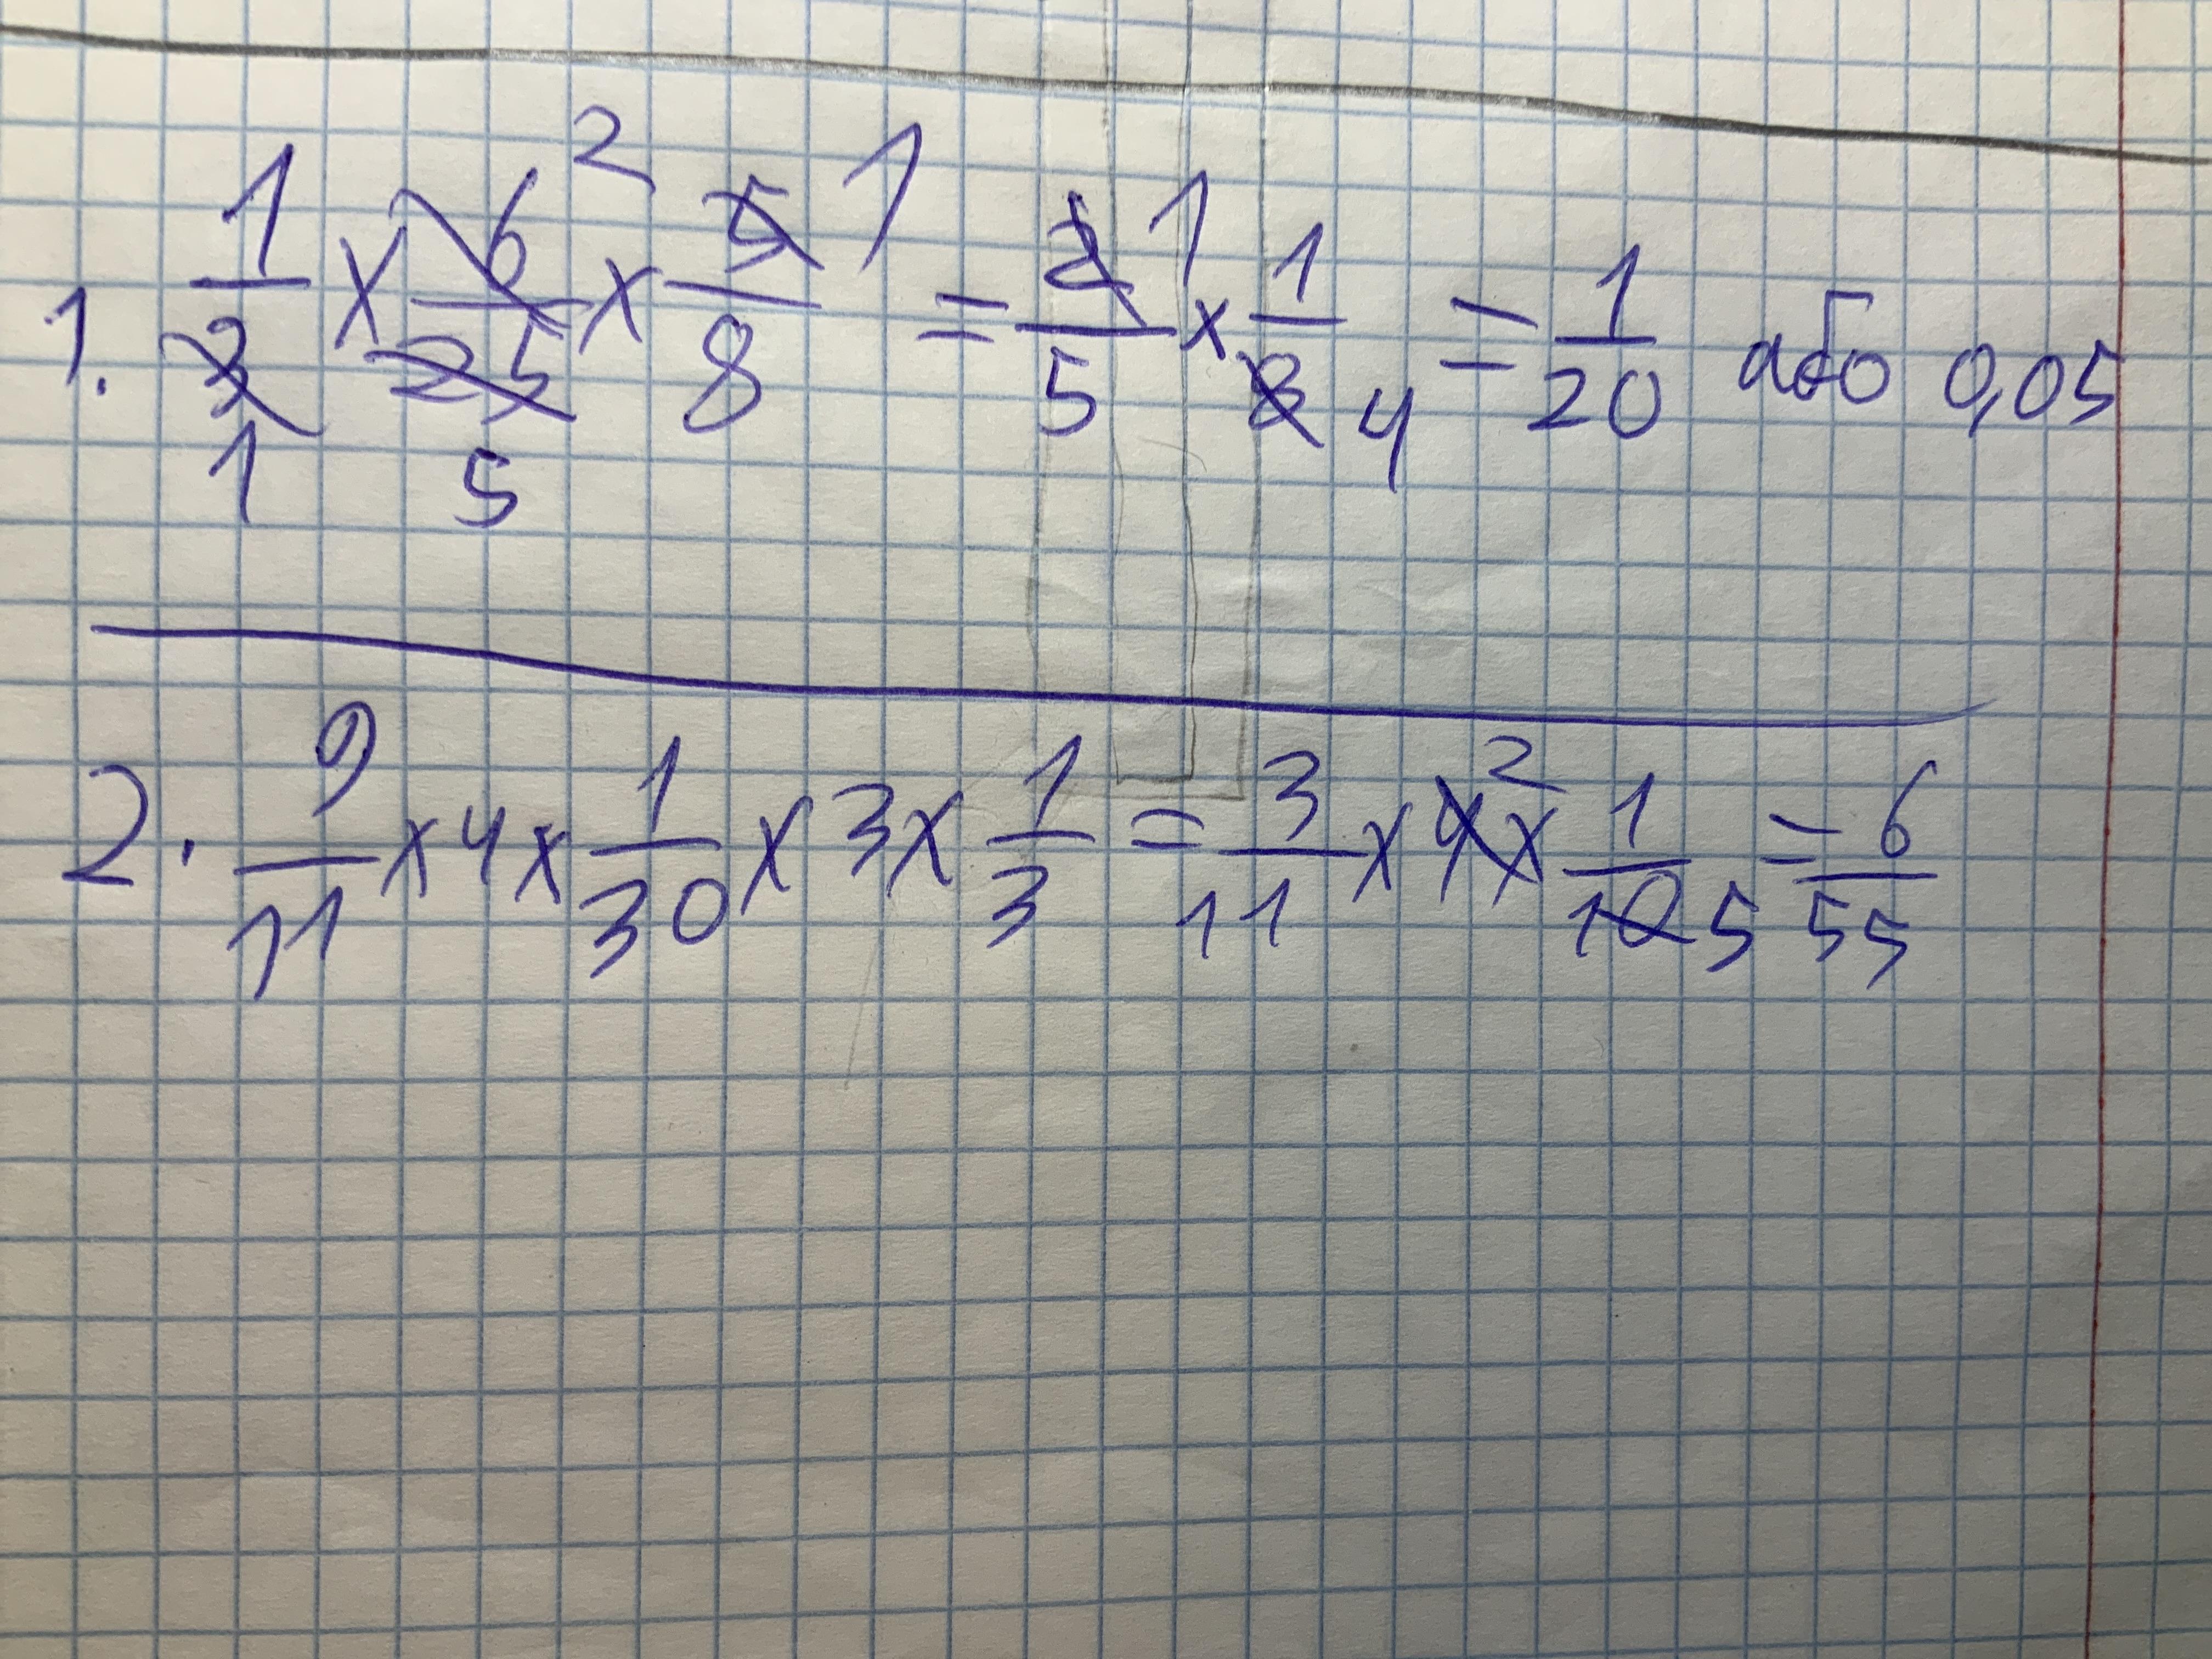 1. 1/3 x 6/25 x 5/8 = 2/5 x 1/8 = 1/20 або 0,05
1 5 2 1 1 4
2. 9/11 x 4 x 1/30 x 3 x 1/3 = 3/11 x 4 x 1/10 = 6/55
2 5